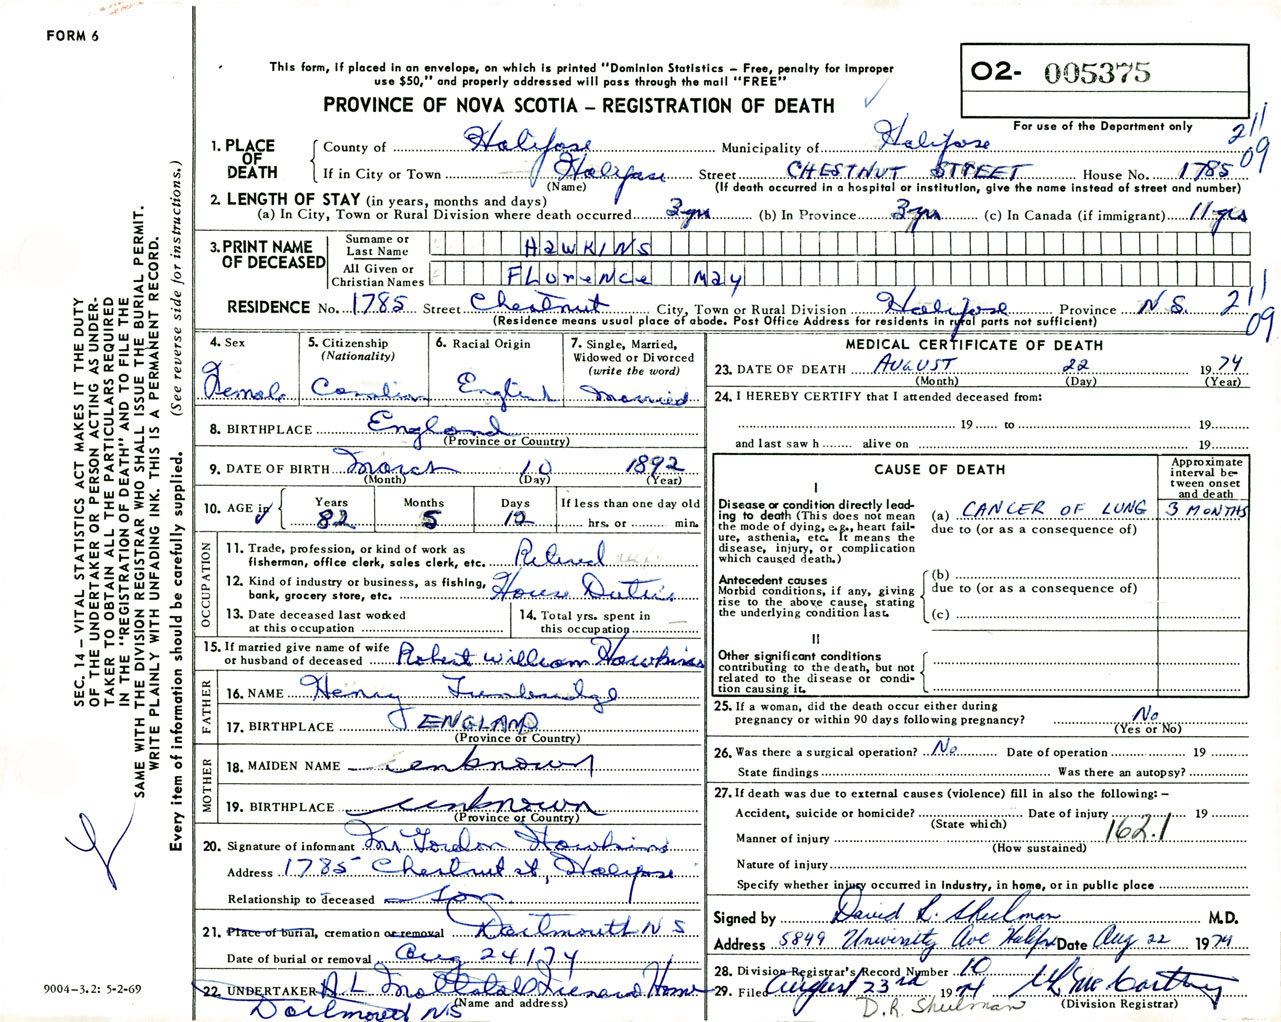 FORM 6
This form, if placed in an envelope, on which is printed "Dominion Statistics – Free, penalty for improper
use $50," and properly addressed will pass through the mail "FREE"
PROVINCE OF NOVA SCOTIA – REGISTRATION OF DEATH
O2- 005375
For use of the Department only
211
09
1. PLACE OF DEATH
County of Halifax Municipality of Halifax
If in City or Town Halifax Street CHESTNUT STREET House No. 1785
(Name) (If death occurred in a hospital or institution, give the name instead of street and number)
2. LENGTH OF STAY (in years, months and days)
(a) In City, Town or Rural Division where death occurred 3 yrs (b) In Province 3 yrs (c) In Canada (if immigrant) 11 yrs
3. PRINT NAME OF DECEASED
Surname or Last Name HAWKINS
All Given or Christian Names FLORENCE MAY
RESIDENCE No. 1785 Street Chestnut City, Town or Rural Division Halifax Province N.S. 211
09
(Residence means usual place of abode. Post Office Address for residents in rural parts not sufficient)
4. Sex
Female
5. Citizenship
(Nationality)
Canadian
6. Racial Origin
English
7. Single, Married,
Widowed or Divorced
(write the word)
Married
8. BIRTHPLACE England
(Province or Country)
9. DATE OF BIRTH March 10 1892
(Month) (Day) (Year)
10. AGE in
Years 82
Months 5
Days 12
If less than one day old
hrs. or min.
OCCUPATION
11. Trade, profession, or kind of work as
fisherman, office clerk, sales clerk, etc. Retired
12. Kind of industry or business, as fishing,
bank, grocery store, etc. House Duties
13. Date deceased last worked
at this occupation
14. Total yrs. spent in
this occupation
15. If married give name of wife
or husband of deceased Robert William Hawkins
FATHER
16. NAME Henry
17. BIRTHPLACE ENGLAND
(Province or Country)
MOTHER
18. MAIDEN NAME unknown
19. BIRTHPLACE unknown
(Province or Country)
20. Signature of informant Mr Gordon Hawkins
Address 1785 Chestnut st, Halifax
Relationship to deceased son
21. Place of burial, cremation or removal Dartmouth N S
Date of burial or removal Aug 24/74
22. UNDERTAKER A L Mattatall Funeral Home
(Name and address)
Dartmouth NS
MEDICAL CERTIFICATE OF DEATH
23. DATE OF DEATH AUGUST 22 1974
(Month) (Day) (Year)
24. I HEREBY CERTIFY that I attended deceased from:
19 to 19
and last saw h alive on 19
CAUSE OF DEATH
Approximate
interval be-
tween onset
and death
I
Disease or condition directly lead-
ing to death (This does not mean
the mode of dying, e.g., heart fail-
ure, asthenia, etc. It means the
disease, injury, or complication
which caused death.)
(a) CANCER OF LUNG 3 MONTHS
due to (or as a consequence of)
Antecedent causes
Morbid conditions, if any, giving
rise to the above cause, stating
the underlying condition last.
(b)
due to (or as a consequence of)
(c)
II
Other significant conditions
contributing to the death, but not
related to the disease or condi-
tion causing it.
25. If a woman, did the death occur either during
pregnancy or within 90 days following pregnancy? No
(Yes or No)
26. Was there a surgical operation? No Date of operation 19
State findings Was there an autopsy?
27. If death was due to external causes (violence) fill in also the following: –
Accident, suicide or homicide? Date of injury 19
(State which)
162.1
Manner of injury
(How sustained)
Nature of injury
Specify whether injury occurred in Industry, in home, or in public place
Signed by David R. Shulman M.D.
Address 5849 University Ave Halifax Date Aug 22 1974
28. Division Registrar's Record Number 10
29. Filed August 23rd 1974 McCarthy
(Division Registrar)
D.R. Shulman
SEC. 14 – VITAL STATISTICS ACT MAKES IT THE DUTY
OF THE UNDERTAKER OR PERSON ACTING AS UNDER-
TAKER TO OBTAIN ALL THE PARTICULARS REQUIRED
IN THE "REGISTRATION OF DEATH" AND TO FILE THE
SAME WITH THE DIVISION REGISTRAR WHO SHALL ISSUE THE BURIAL PERMIT.
WRITE PLAINLY WITH UNFADING INK. THIS IS A PERMANENT RECORD.
Every item of information should be carefully supplied. (See reverse side for instructions.)
9004-3.2: 5-2-69